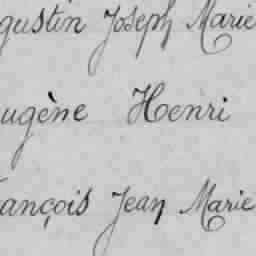 gustin Joseph Marie
ugène Henri
ançois Jean Marie